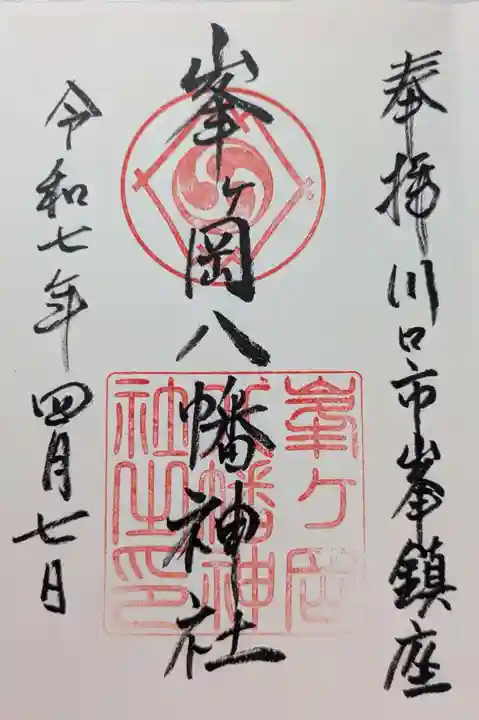 奉拝 川口市峯鎮座
峯ヶ岡八幡神社
令和七年 四月七日
峯ヶ岡
八幡神
社之印